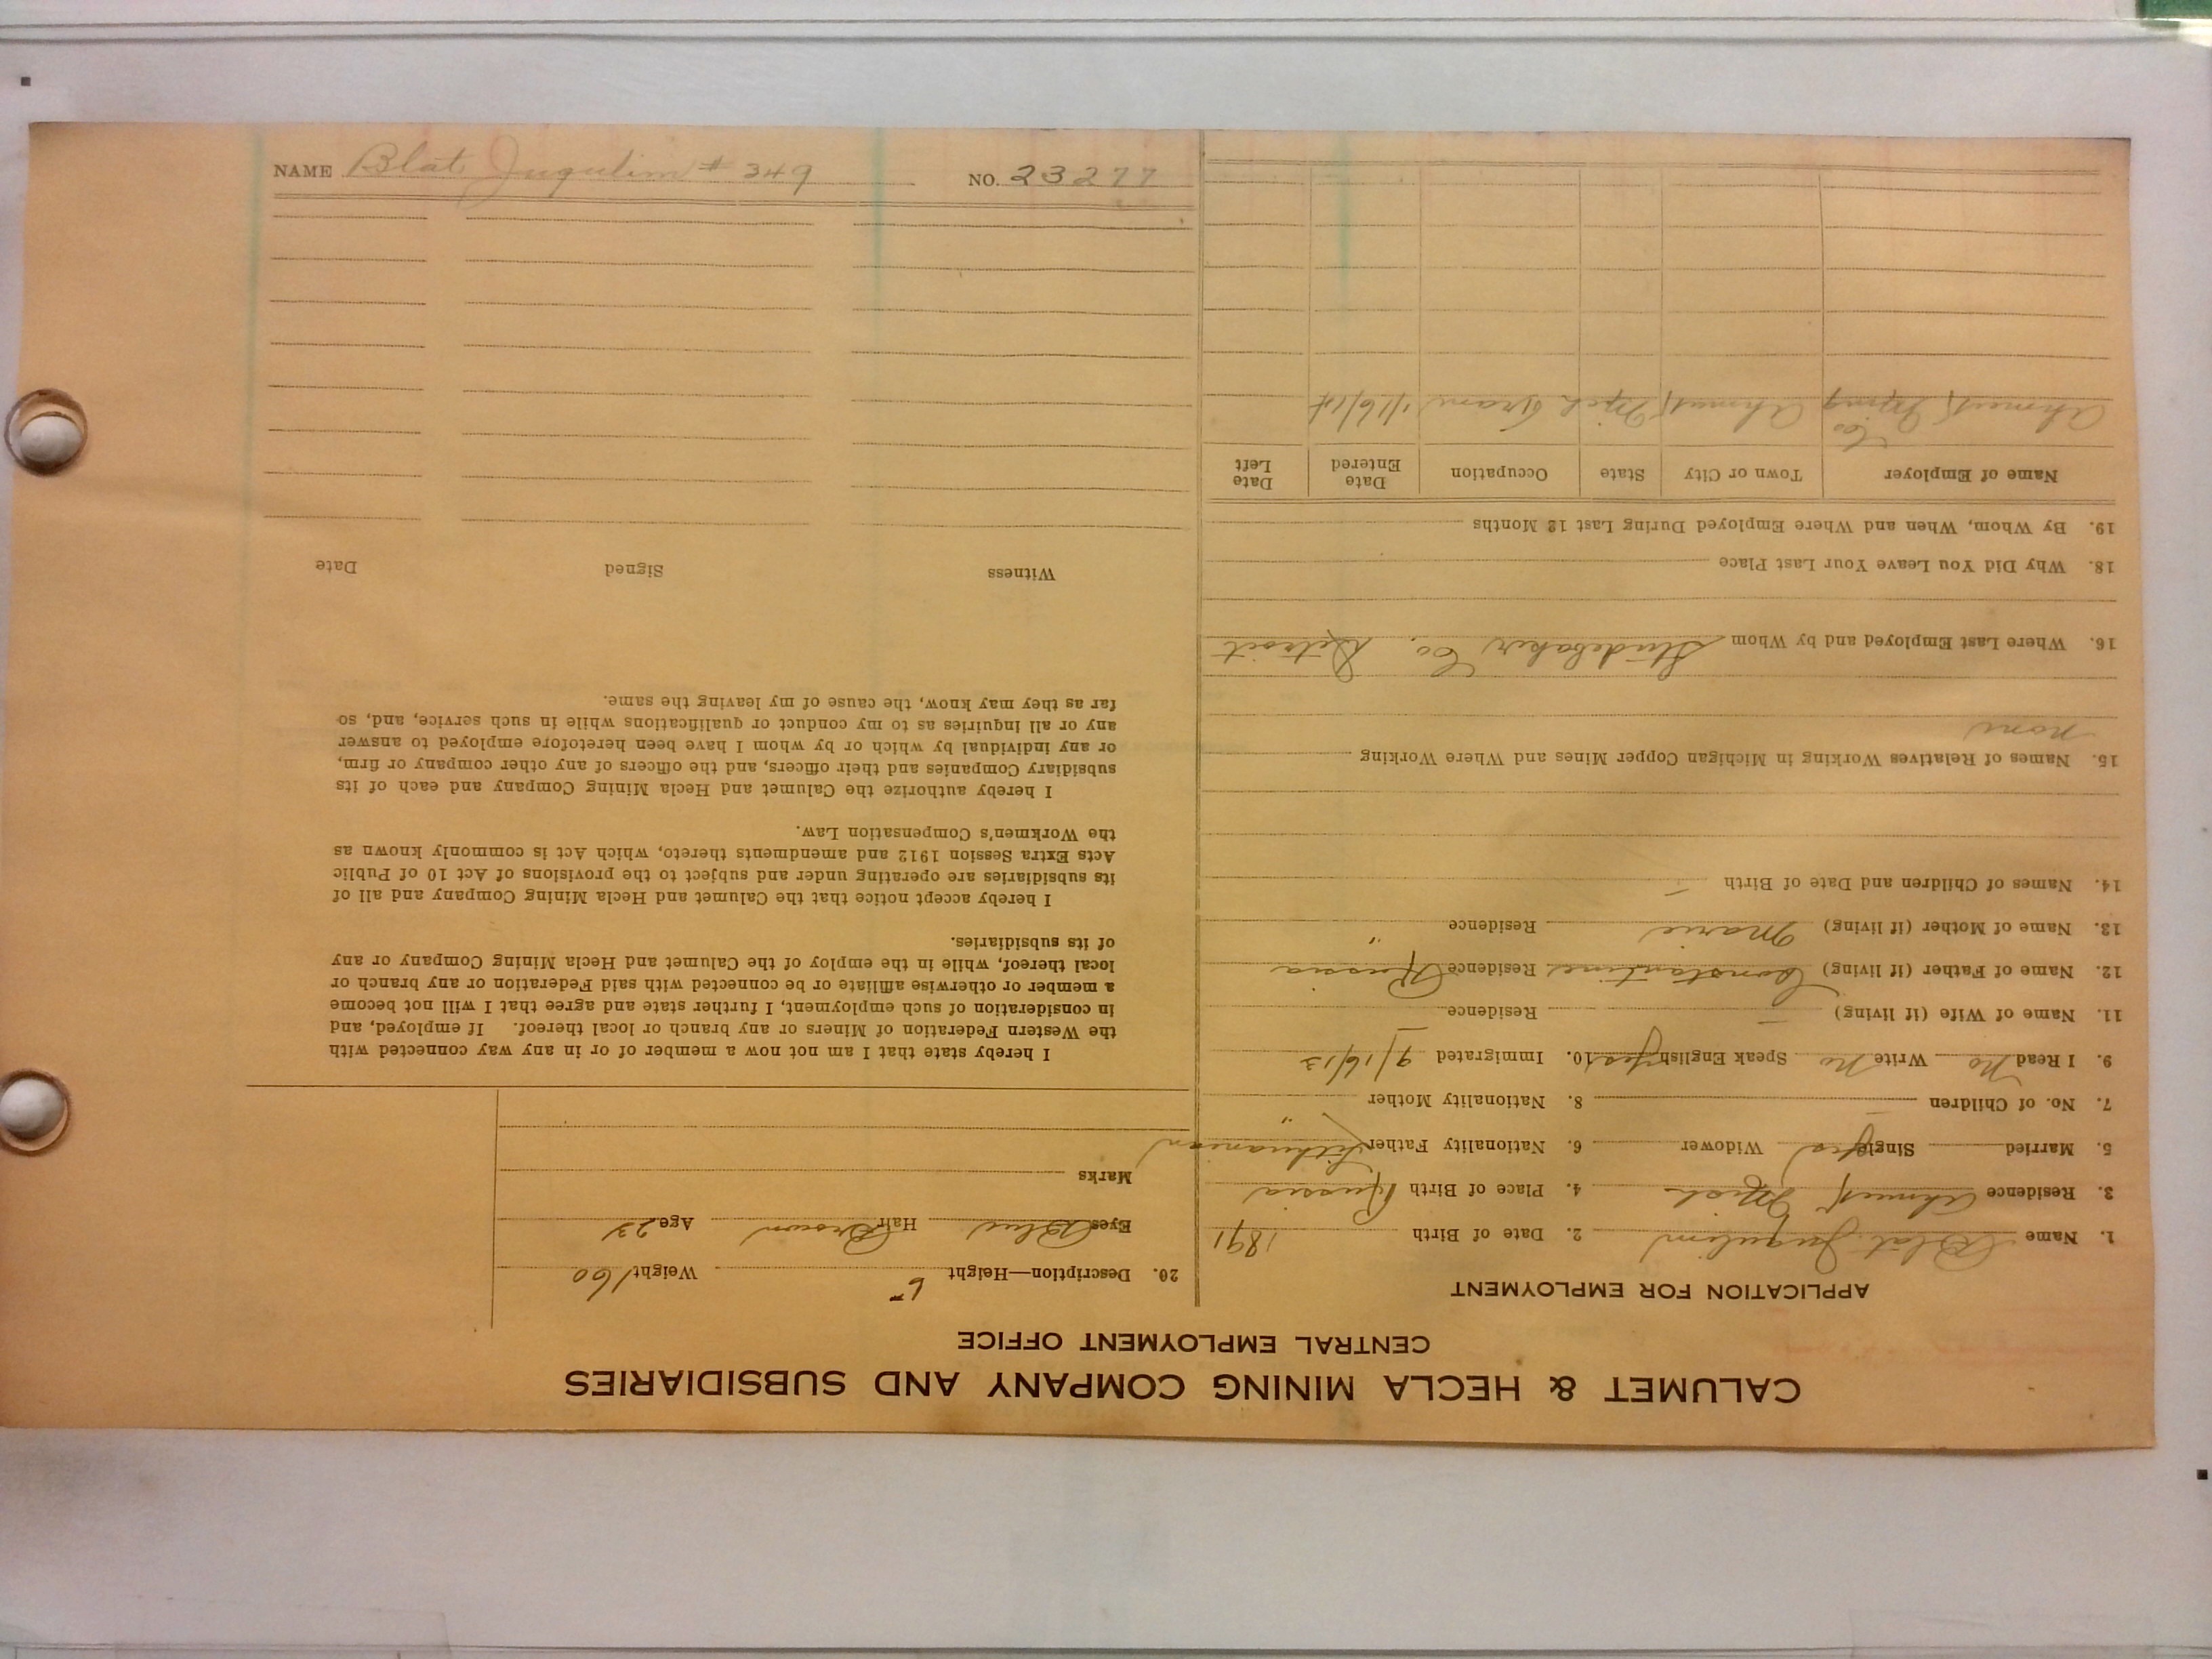 CALUMET & HECLA MINING COMPANY AND SUBSIDIARIES
CENTRAL EMPLOYMENT OFFICE
APPLICATION FOR EMPLOYMENT
1. Name Blat Jugulim 2. Date of Birth 1891
3. Residence Ahmeek Mich 4. Place of Birth Russia
5. Married Single yes Widower 6. Nationality Father Lithuanian
7. No. of Children — 8. Nationality Mother "
9. I Read No Write No Speak English yes 10. Immigrated 9/16/13
11. Name of Wife (if living) — Residence
12. Name of Father (if living) Constantine Residence Russia
13. Name of Mother (if living) Marie Residence "
14. Names of Children and Date of Birth —
15. Names of Relatives Working in Michigan Copper Mines and Where Working
none
16. Where Last Employed and by Whom Studebaker Co, Detroit
18. Why Did You Leave Your Last Place
19. By Whom, When and Where Employed During Last 12 Months
Name of Employer Town or City State Occupation Date Entered Date Left
Ahmeek Mining Co. Ahmeek Mich Tram
20. Description—Height 5 6 Weight 160
Eyes Blue Hair Brown Age 23
Marks
I hereby state that I am not now a member of or in any way connected with
the Western Federation of Miners or any branch or local thereof. If employed, and
in consideration of such employment, I further state and agree that I will not become
a member or otherwise affiliate or be connected with said Federation or any branch or
local thereof, while in the employ of the Calumet and Hecla Mining Company or any
of its subsidiaries.
I hereby accept notice that the Calumet and Hecla Mining Company and all of
its subsidiaries are operating under and subject to the provisions of Act 10 of Public
Acts Extra Session 1912 and amendments thereto, which Act is commonly known as
the Workmen's Compensation Law.
I hereby authorize the Calumet and Hecla Mining Company and each of its
subsidiary Companies and their officers, and the officers of any other company or firm,
or any individual by which or by whom I have been heretofore employed to answer
any or all inquiries as to my conduct or qualifications while in such service, and, so
far as they may know, the cause of my leaving the same.
Witness Signed Date
NAME Blat, Jugulim # 349 NO. 23277